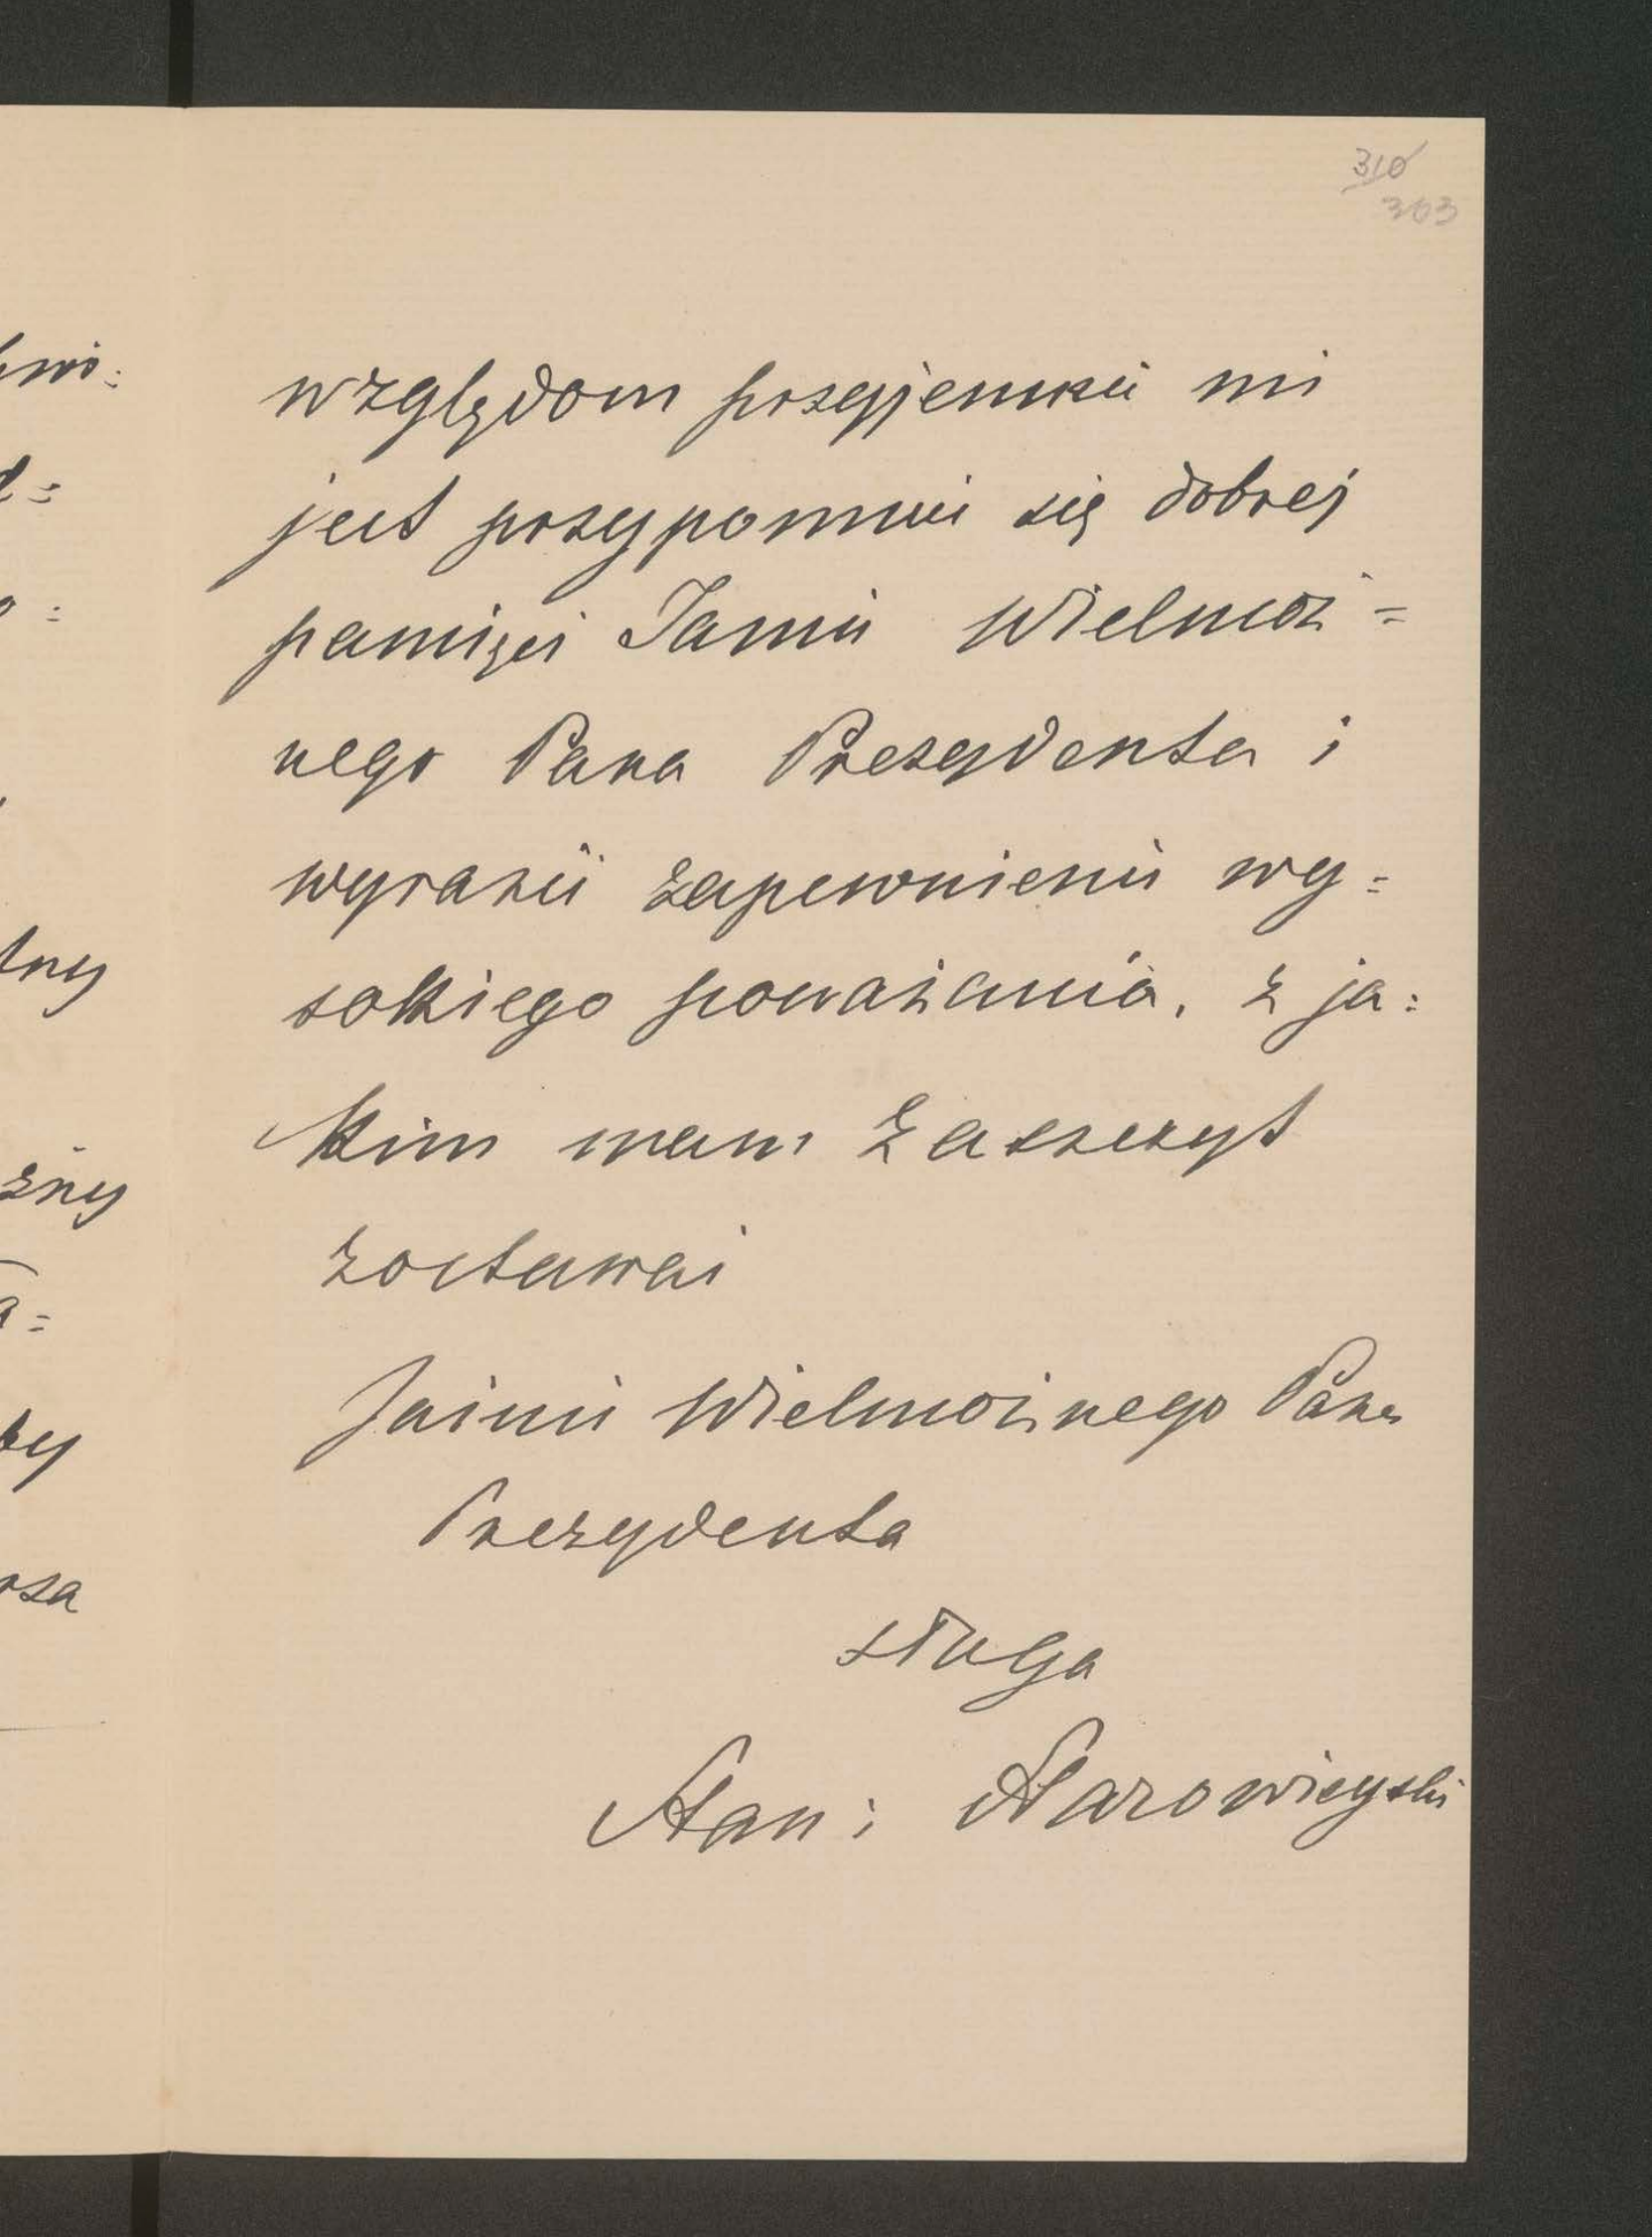 310
303
względom przyjemniej mi
jest przypomnieć się dobrej
pamięci Jaśnie Wielmoż=
nego Pana Prezydenta i
wyrazić zapewnienie wy=
sokiego poważania, z ja=
kim mam zaszczyt
zostawać
Jaśnie Wielmożnego Pana
Prezydenta
sługa
Stan: Starowieyski